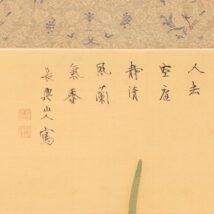 人去
空庭
静清
風蘭
氣香
長山人寫